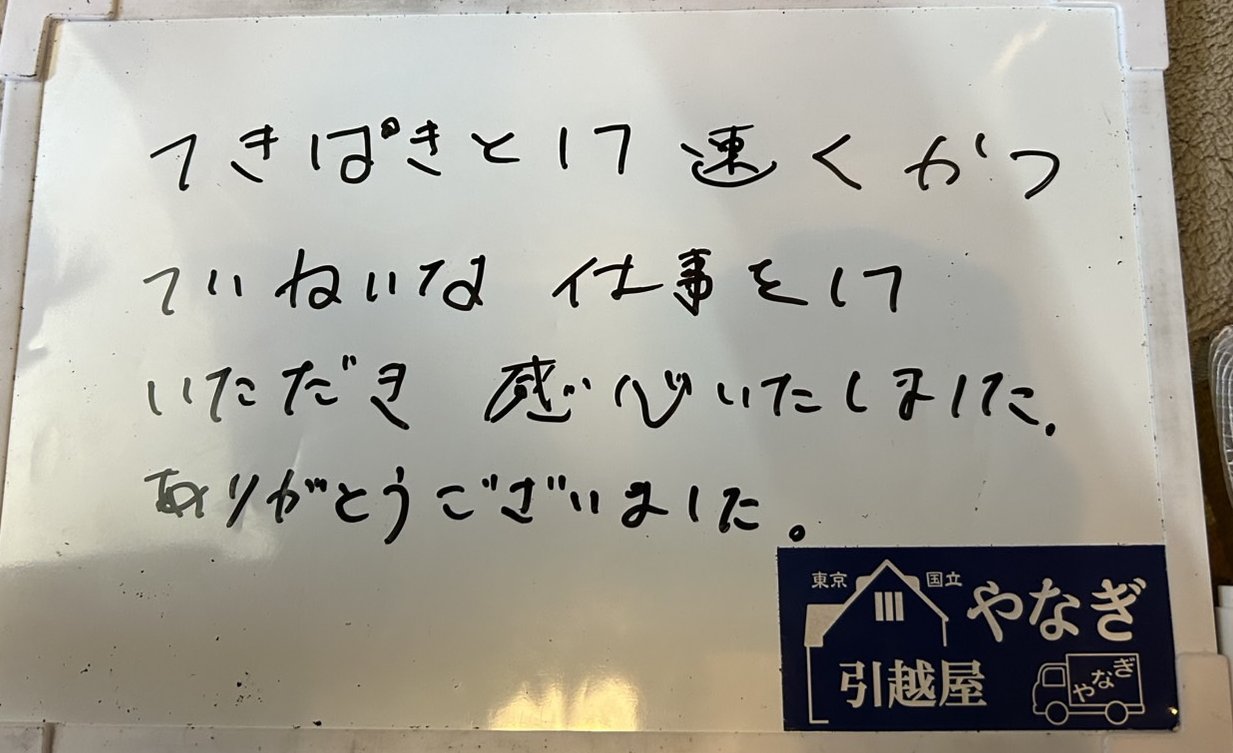 てきぱきとして 速くかつ
ていねいな 仕事をして
いただき 感心いたしました.
ありがとうございました。
東京 国立 やなぎ
引越屋 やなぎ